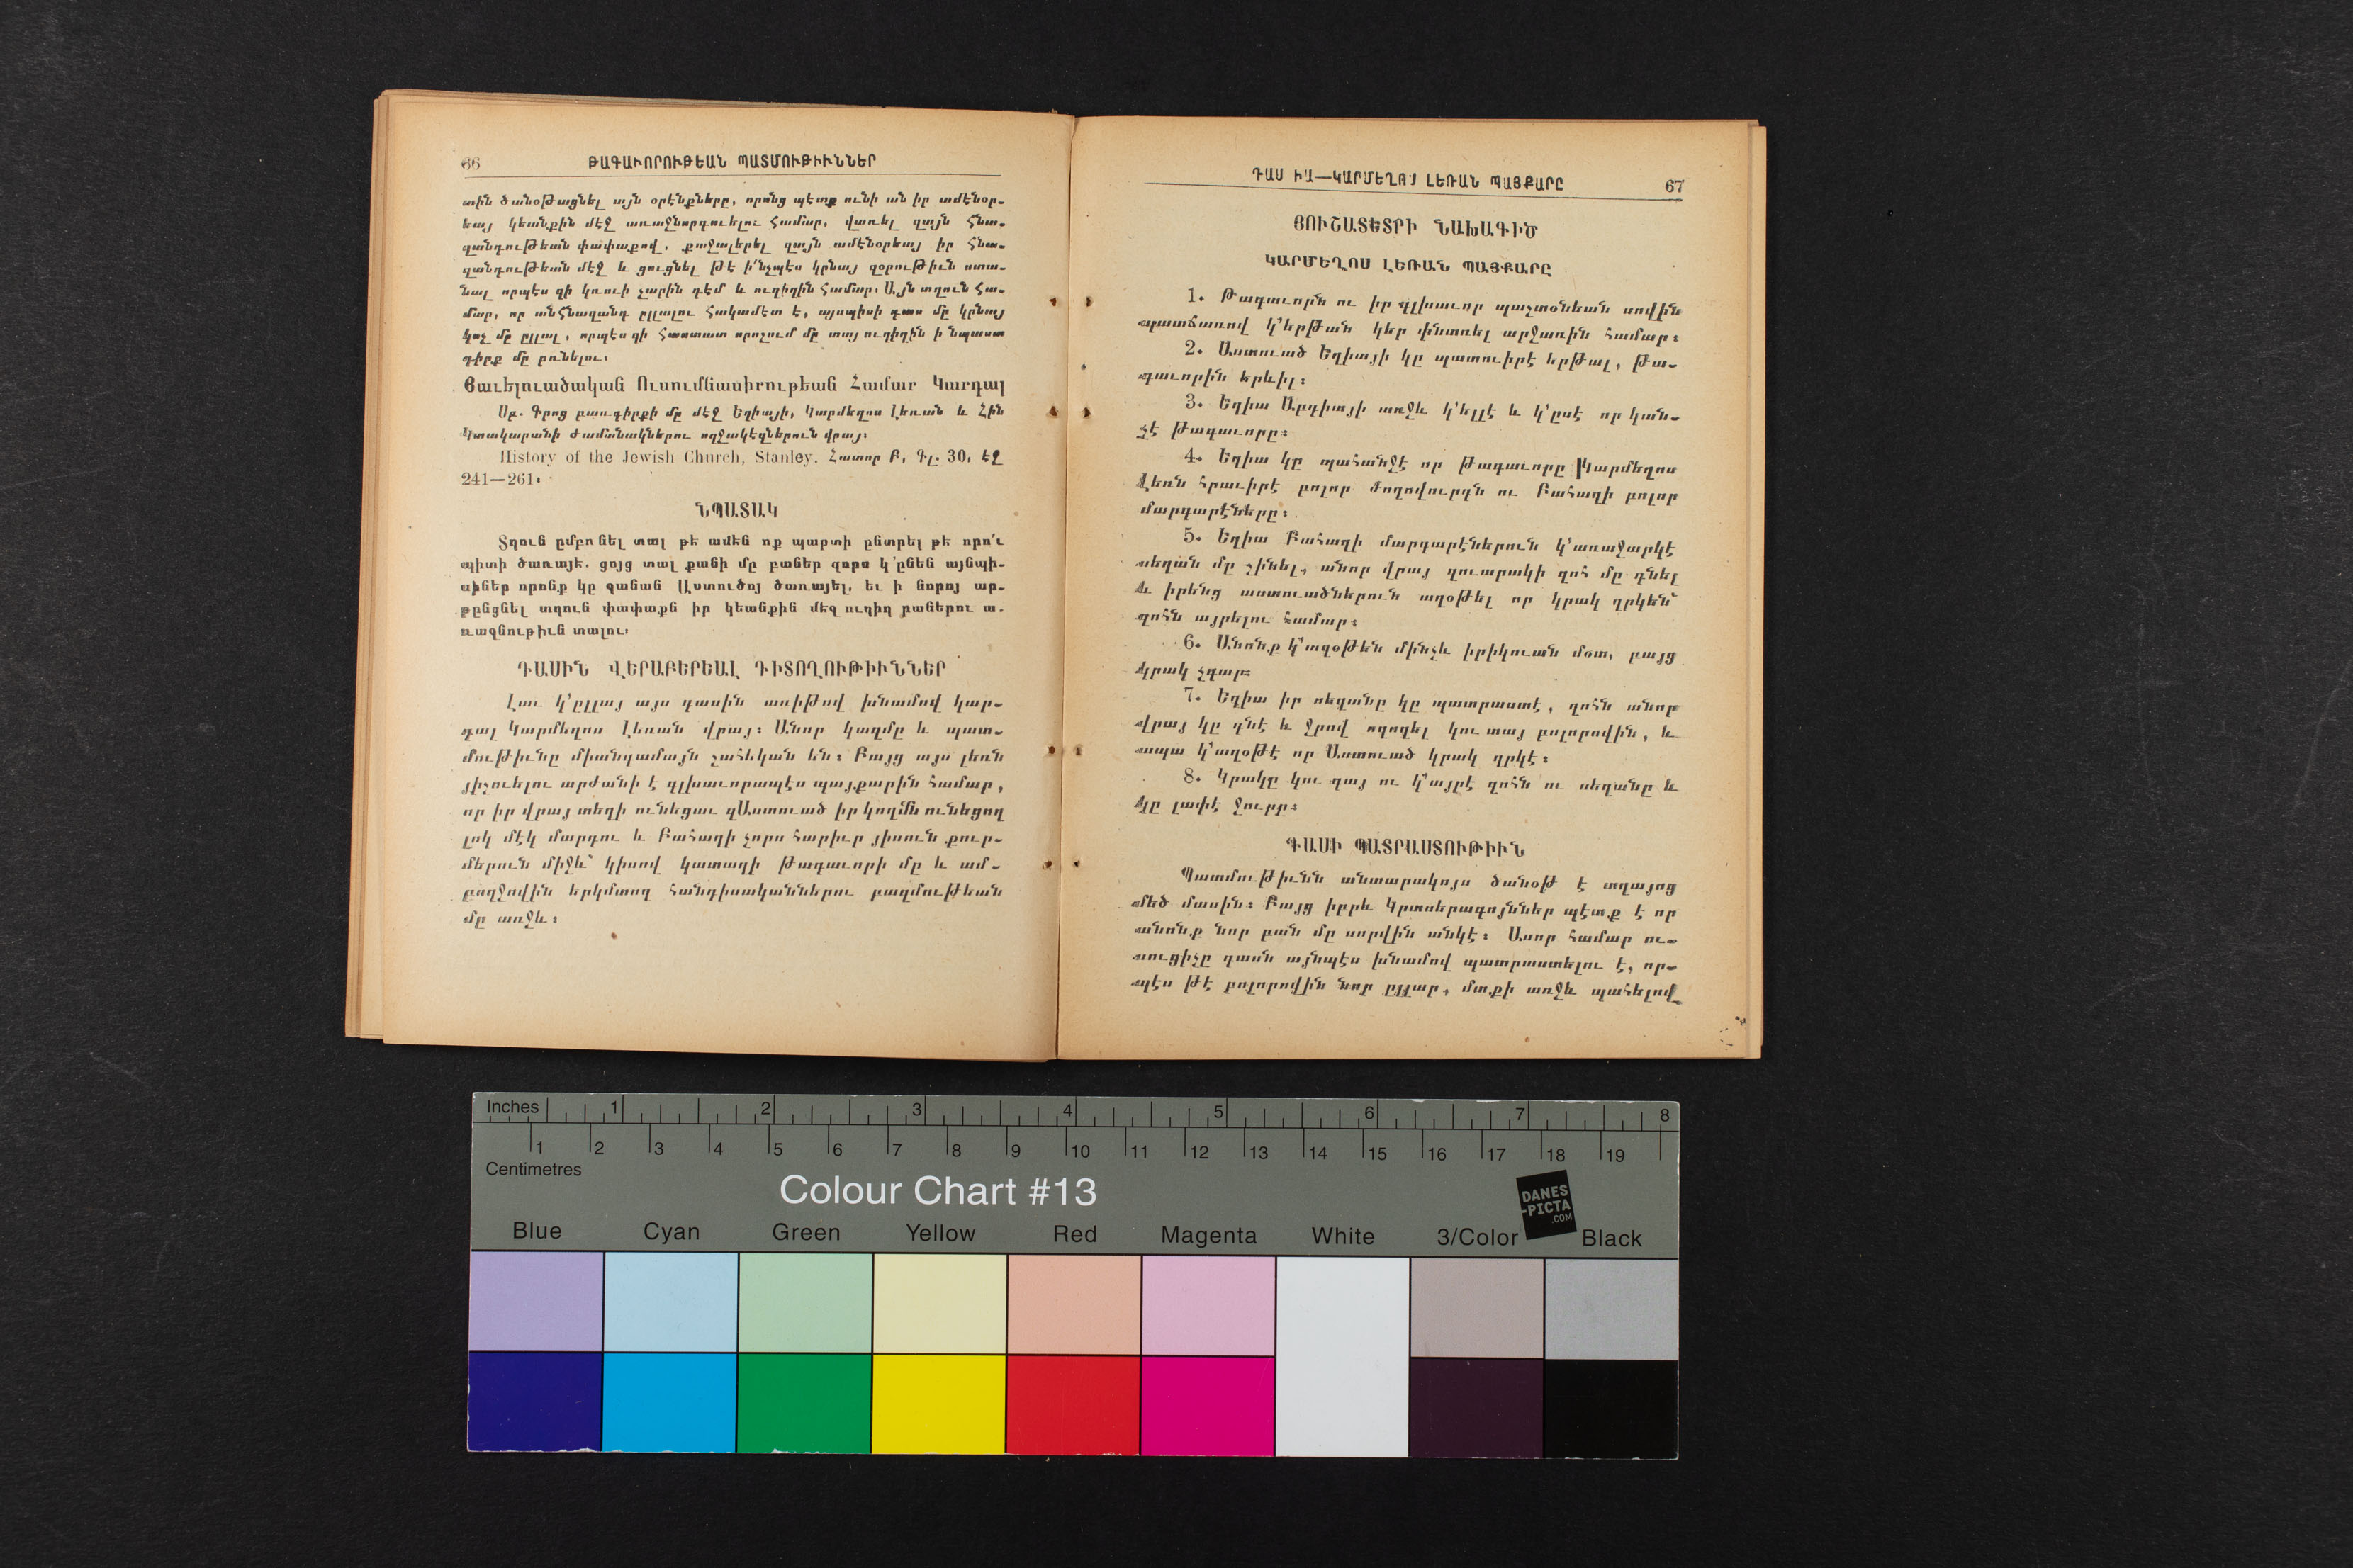 66 ԹԱԳԱՒՈՐՈՒԹԵԱՆ ՊԱՏՄՈՒԹԻՒՆՆԵՐ
տին ծանօթացնել այն օրէնքները, որոնց պէտք ունի ան իր ամէնօր-
եայ կեանքին մէջ առաջնորդուելու համար, վառել զայն հնա-
զանդութեան փափաքով, քաջալերել զայն ամէնօրեայ իր հնա-
զանդութեան մէջ և ցուցնել թէ ի՛նչպէս կրնայ զօրութիւն ստա-
նալ որպէս զի կռուի չարին դէմ և ուղիղին համար։ Այն տղուն հա-
մար, որ անհնազանդ ըլլալու հակամէտ է, այսպիսի դաս մը կրնայ
կոչ մը ըլլալ, որպէս զի հաստատ որոշում մը տայ ուղիղին ի նպաստ
դիրք մը բռնելու։
Յաւելուածական Ուսումնասիրութեան Համար Կարդալ
Սբ. Գրոց բառգիրքի մը մէջ Եղիայի, Կարմեղոս Լեռան և Հին
Կտակարանի ժամանակներու ողջակէզներուն վրայ։
History of the Jewish Church, Stanley. Հատոր Բ, Գլ. 30, էջ
241—261։
ՆՊԱՏԱԿ
Տղուն ըմբռնել տալ թէ ամեն ոք պարտի ընտրել թէ որո՛ւ
պիտի ծառայէ. ցոյց տալ քանի մը բաներ զորս կ՚ընեն այնպի-
սիներ որոնք կը զանան Աստուծոյ ծառայել, եւ ի նորոյ ար-
թընցնել տղուն փափաքն իր կեանքին մէջ ուղիղ բաներու ա-
ռաջնութիւն տալու։
ԴԱՍԻՆ ՎԵՐԱԲԵՐԵԱԼ ԴԻՏՈՂՈՒԹԻՒՆՆԵՐ
Լաւ կ՚ըլլայ այս դասին առիթով խնամով կար-
դալ Կարմեղոս Լեռան վրայ։ Անոր կազմը և պատ-
մութիւնը միանգամայն շահեկան են։ Բայց այս լեռն
յիշուելու արժանի է գլխաւորապէս պայքարին համար,
որ իր վրայ տեղի ունեցաւ զԱստուած իր կողմն ունեցող
լոկ մէկ մարդու և Բահաղի չորս հարիւր յիսուն քուր-
մերուն միջև՝ կիսով կատաղի թագաւորի մը և ամ-
բողջովին երկմտող հանդիսականներու բազմութեան
մը առջև։
ԴԱՍ ԻԱ—ԿԱՐՄԵՂՈՍ ԼԵՌԱՆ ՊԱՅՔԱՐԸ 67
ՅՈՒՇԱՏԵՏՐԻ ՆԱԽԱԳԻԾ
ԿԱՐՄԵՂՈՍ ԼԵՌԱՆ ՊԱՅՔԱՐԸ
1. Թագաւորն ու իր գլխաւոր պաշտօնեան սովին
պատճառով կ՚երթան կեր փնտռել արջառին համար։
2. Աստուած Եղիայի կը պատուիրէ երթալ, թա-
գաւորին երևիլ։
3. Եղիա Աբդիայի առջև կ՚ելլէ և կ՚ըսէ որ կան-
չէ թագաւորը։
4. Եղիա կը պահանջէ որ թագաւորը Կարմեղոս
Լեռն հրաւիրէ բոլոր ժողովուրդն ու Բահաղի բոլոր
մարգարէները։
5. Եղիա Բահաղի մարգարէներուն կ՚առաջարկէ
սեղան մը շինել, անոր վրայ զուարակի զոհ մը դնել
և իրենց աստուածներուն աղօթել որ կրակ ղրկեն՝
զոհն այրելու համար։
6. Անոնք կ՚աղօթեն մինչև իրիկուան մօտ, բայց
կրակ չգար։
7. Եղիա իր սեղանը կը պատրաստէ, զոհն անոր
վրայ կը դնէ և ջրով ողողել կու տայ բոլորովին, և
ապա կ՚աղօթէ որ Աստուած կրակ ղրկէ։
8. Կրակը կու գայ ու կ՚այրէ զոհն ու սեղանը և
կը լափէ ջուրը։
ԴԱՍԻ ՊԱՏՐԱՍՏՈՒԹԻՒՆ
Պատմութիւնն անտարակոյս ծանօթ է տղայոց
մեծ մասին։ Բայց իբրև Կրտսերագոյններ պէտք է որ
անոնք նոր բան մը սորվին անկէ։ Ասոր համար ու-
սուցիչը դասն այնպէս խնամով պատրաստելու է, որ-
պէս թէ բոլորովին նոր ըլլար, մտքի առջև պահելով
Inches 1 2 3 4 5 6 7 8
1 2 3 4 5 6 7 8 9 10 11 12 13 14 15 16 17 18 19
Centimetres
Colour Chart #13
DANES
-PICTA
.COM
Blue Cyan Green Yellow Red Magenta White 3/Color Black